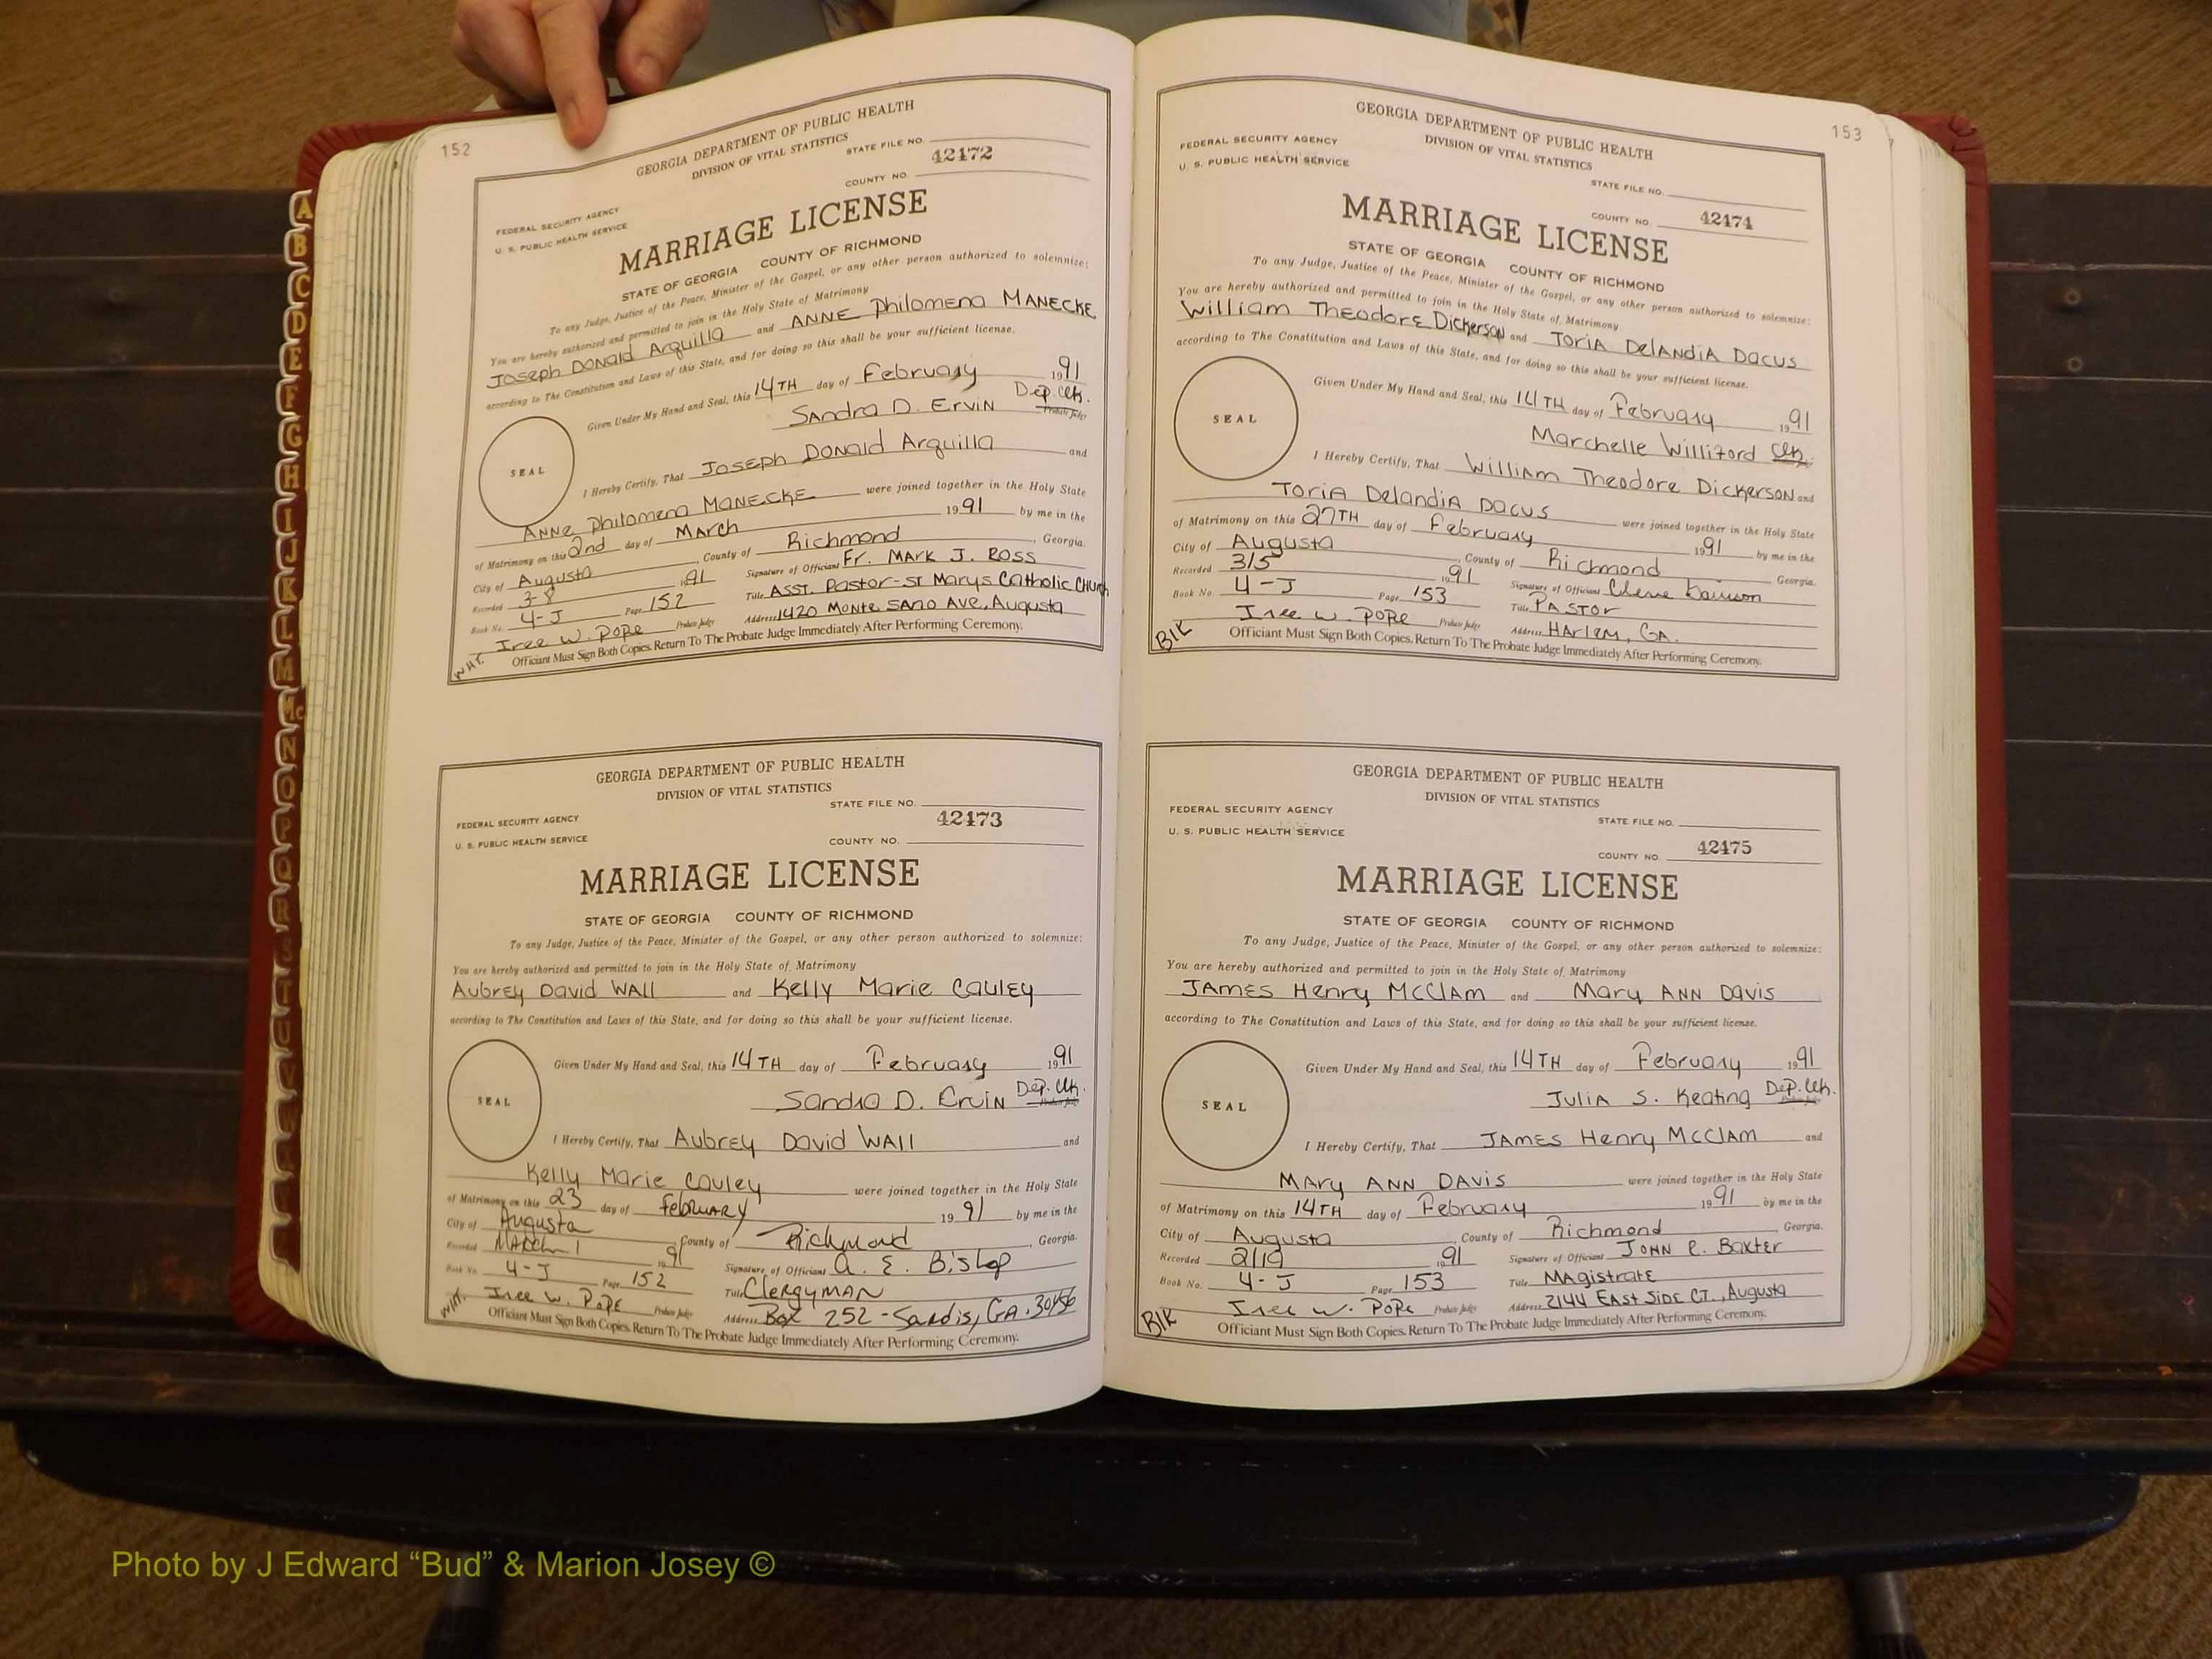 152
GEORGIA DEPARTMENT OF PUBLIC HEALTH
DIVISION OF VITAL STATISTICS
STATE FILE NO.
42172
COUNTY NO.
FEDERAL SECURITY AGENCY
U. S. PUBLIC HEALTH SERVICE
MARRIAGE LICENSE
STATE OF GEORGIA COUNTY OF RICHMOND
To any Judge, Justice of the Peace, Minister of the Gospel, or any other person authorized to solemnize:
You are hereby authorized and permitted to join in the Holy State of Matrimony
Joseph Donald Arquilla and ANNE Philomena MANECKE
according to The Constitution and Laws of this State, and for doing so this shall be your sufficient license.
Given Under My Hand and Seal, this 14TH day of February 1991
Sandra D. Ervin Dep. Clk. Probate Judge
SEAL
I Hereby Certify, That Joseph Donald Arquilla and
ANNE Philomena MANECKE were joined together in the Holy State
of Matrimony on this 2nd day of March 1991 by me in the
City of Augusta, County of Richmond, Georgia.
Recorded 3-8 1991 Signature of Officiant Fr. Mark J. Ross
Book No. 4-J Page 152 Title Asst. Pastor-St Marys Catholic Church
Iree W. Pope Probate Judge Address 1420 Monte Sano Ave., Augusta
WHT. Officiant Must Sign Both Copies. Return To The Probate Judge Immediately After Performing Ceremony.
GEORGIA DEPARTMENT OF PUBLIC HEALTH
DIVISION OF VITAL STATISTICS
STATE FILE NO.
42173
COUNTY NO.
FEDERAL SECURITY AGENCY
U. S. PUBLIC HEALTH SERVICE
MARRIAGE LICENSE
STATE OF GEORGIA COUNTY OF RICHMOND
To any Judge, Justice of the Peace, Minister of the Gospel, or any other person authorized to solemnize:
You are hereby authorized and permitted to join in the Holy State of Matrimony
Aubrey David Wall and Kelly Marie Cauley
according to The Constitution and Laws of this State, and for doing so this shall be your sufficient license.
Given Under My Hand and Seal, this 14TH day of February 1991
Sandra D. Ervin Dep. Clk. Probate Judge
SEAL
I Hereby Certify, That Aubrey David Wall and
Kelly Marie Cauley were joined together in the Holy State
of Matrimony on this 23 day of February 1991 by me in the
City of Augusta, County of Richmond, Georgia.
Recorded March 1 1991 Signature of Officiant A. E. Bishop
Book No. 4-J Page 152 Title Clergyman
Iree W. Pope Probate Judge Address Box 252 - Sardis, GA. 30456
WHT. Officiant Must Sign Both Copies. Return To The Probate Judge Immediately After Performing Ceremony.
153
GEORGIA DEPARTMENT OF PUBLIC HEALTH
DIVISION OF VITAL STATISTICS
FEDERAL SECURITY AGENCY
U. S. PUBLIC HEALTH SERVICE
STATE FILE NO.
COUNTY NO. 42174
MARRIAGE LICENSE
STATE OF GEORGIA COUNTY OF RICHMOND
To any Judge, Justice of the Peace, Minister of the Gospel, or any other person authorized to solemnize:
You are hereby authorized and permitted to join in the Holy State of Matrimony
William Theodore Dickerson and Toria Delandia Dacus
according to The Constitution and Laws of this State, and for doing so this shall be your sufficient license.
Given Under My Hand and Seal, this 14TH day of February 1991
Marchelle Williford Clk.
SEAL
I Hereby Certify, That William Theodore Dickerson and
Toria Delandia Dacus were joined together in the Holy State
of Matrimony on this 27TH day of February 1991 by me in the
City of Augusta, County of Richmond, Georgia.
Recorded 3/5 1991 Signature of Officiant
Book No. 4-J Page 153 Title Pastor
Iree W. Pope Probate Judge Address Harlem, GA.
Blk Officiant Must Sign Both Copies. Return To The Probate Judge Immediately After Performing Ceremony.
GEORGIA DEPARTMENT OF PUBLIC HEALTH
DIVISION OF VITAL STATISTICS
FEDERAL SECURITY AGENCY
U. S. PUBLIC HEALTH SERVICE
STATE FILE NO.
COUNTY NO. 42175
MARRIAGE LICENSE
STATE OF GEORGIA COUNTY OF RICHMOND
To any Judge, Justice of the Peace, Minister of the Gospel, or any other person authorized to solemnize:
You are hereby authorized and permitted to join in the Holy State of Matrimony
James Henry McClam and Mary Ann Davis
according to The Constitution and Laws of this State, and for doing so this shall be your sufficient license.
Given Under My Hand and Seal, this 14TH day of February 1991
Julia S. Keating Dep. Clk.
SEAL
I Hereby Certify, That James Henry McClam and
Mary Ann Davis were joined together in the Holy State
of Matrimony on this 14TH day of February 1991 by me in the
City of Augusta, County of Richmond, Georgia.
Recorded 2/19 1991 Signature of Officiant John R. Baxter
Book No. 4-J Page 153 Title Magistrate
Iree W. Pope Probate Judge Address 2144 East Side Ct., Augusta
Blk Officiant Must Sign Both Copies. Return To The Probate Judge Immediately After Performing Ceremony.
A
B
C
D
E
F
G
H
I
J
K
L
M
Mc
N
O
P
Q
R
S
T
U
V
Photo by J Edward “Bud” & Marion Josey ©